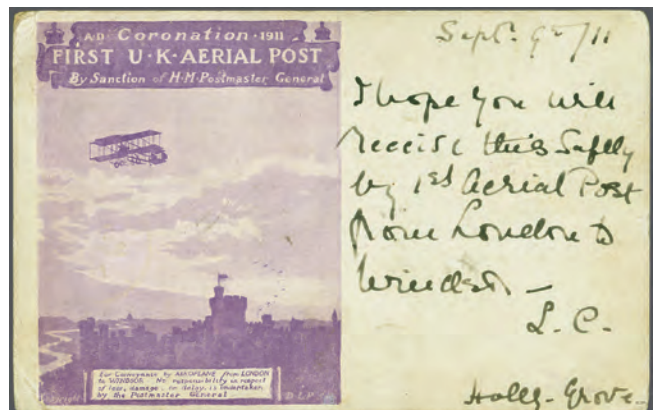 A·D· Coronation · 1911
FIRST U·K·AERIAL POST
By Sanction of H·M·Postmaster General
For Conveyance by AEROPLANE from LONDON
to WINDSOR. No responsibility in respect
of loss, damage, or delay, is undertaken
by the Postmaster General
Copyright
D L P
Sept. 9th/11
I hope you will
receive this safely
by 1st Aerial Post
from London to
Windsor —
L. C.
Holly-Grove